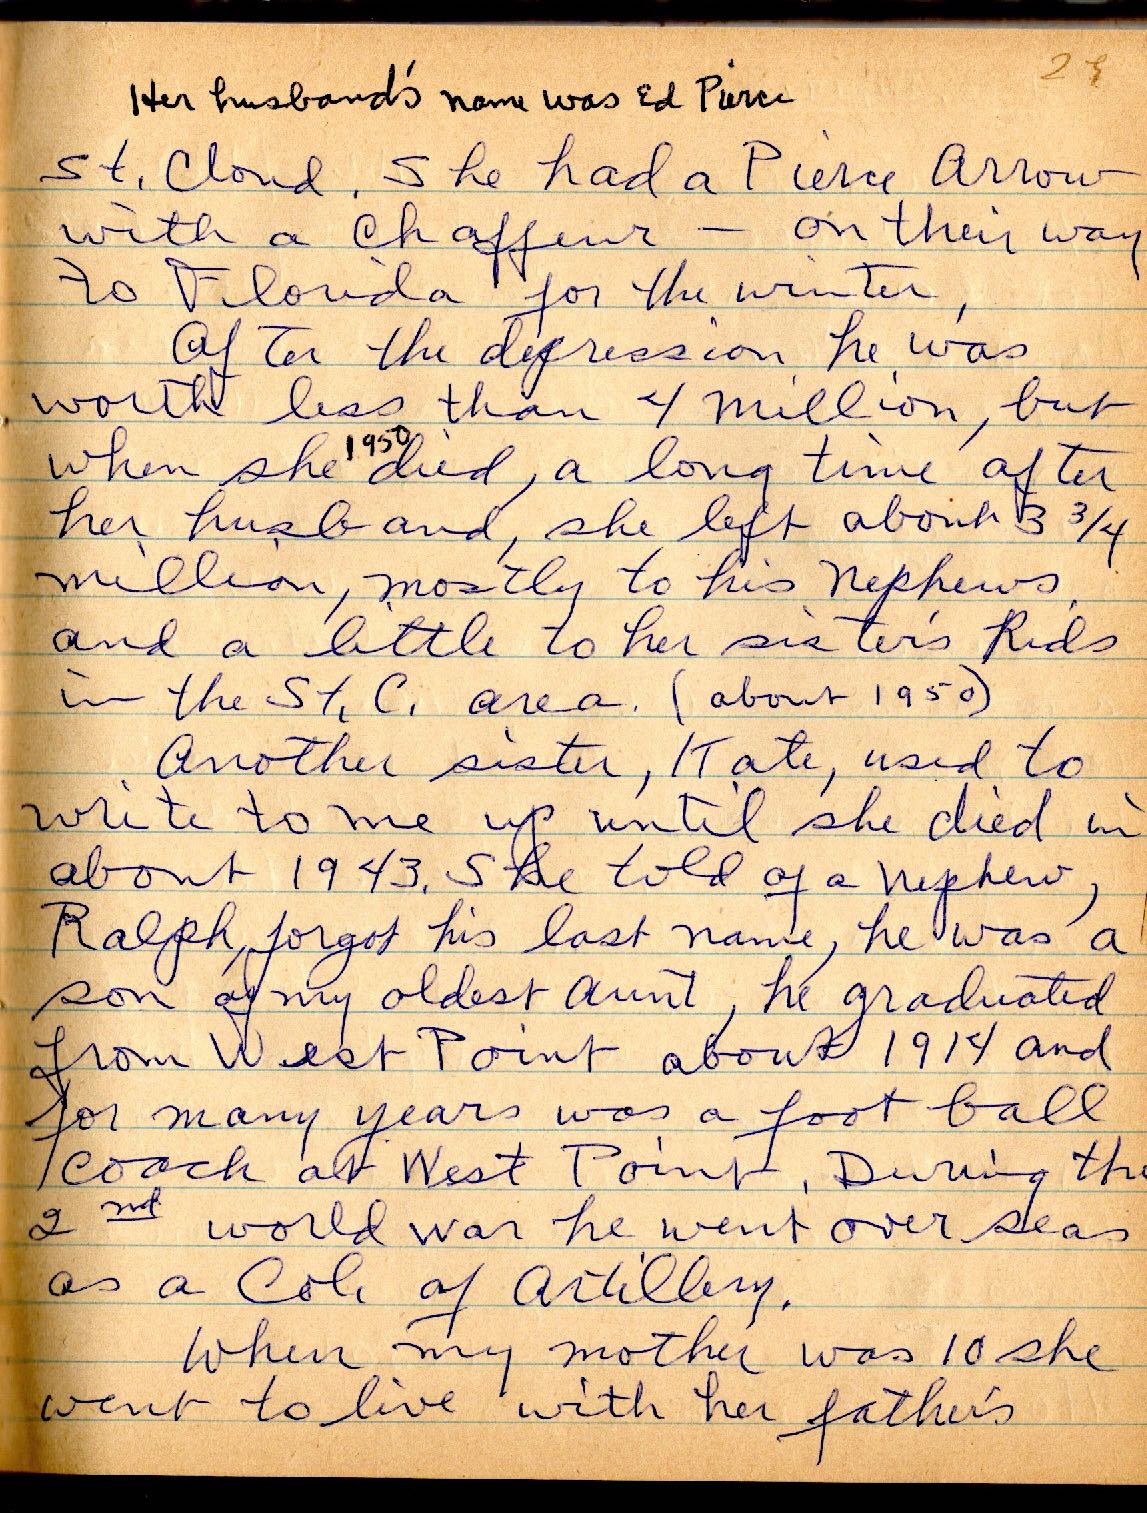 Her husband's name was Ed Pierce
St. Cloud. She had a Pierce Arrow
with a chaffeur — on their way
to Florida for the winter,
After the depression he was
worth less than 4 million, but
1950
when she died, a long time after
her husband, she left about 3 3/4
million, mostly to his nephews,
and a little to her sister's kids
in the St. C. area. (about 1950)
Another sister, Kate, used to
write to me up until she died in
about 1943. She told of a nephew,
Ralph, forgot his last name, he was a
son of my oldest aunt, he graduated
from West Point about 1914 and
for many years was a foot ball
coach at West Point. During the
2nd world war he went over seas
as a Col. of Artillery.
When my mother was 10 she
went to live with her father's